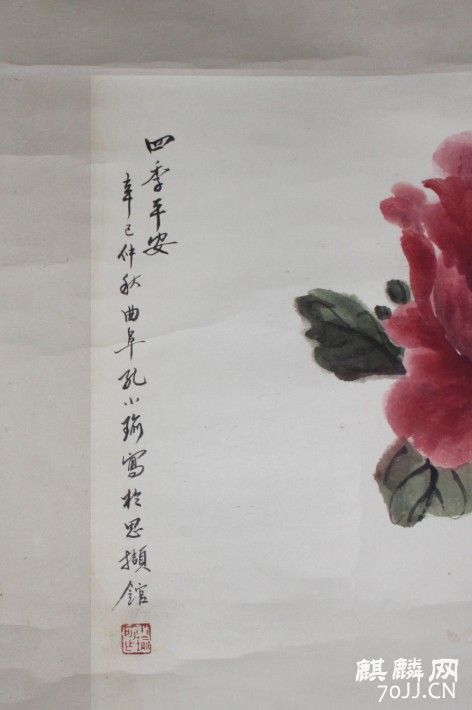 四季平安
辛巳仲秋曲阜孔小瑜寫於思擷館
麒麟网
70JJ.CN